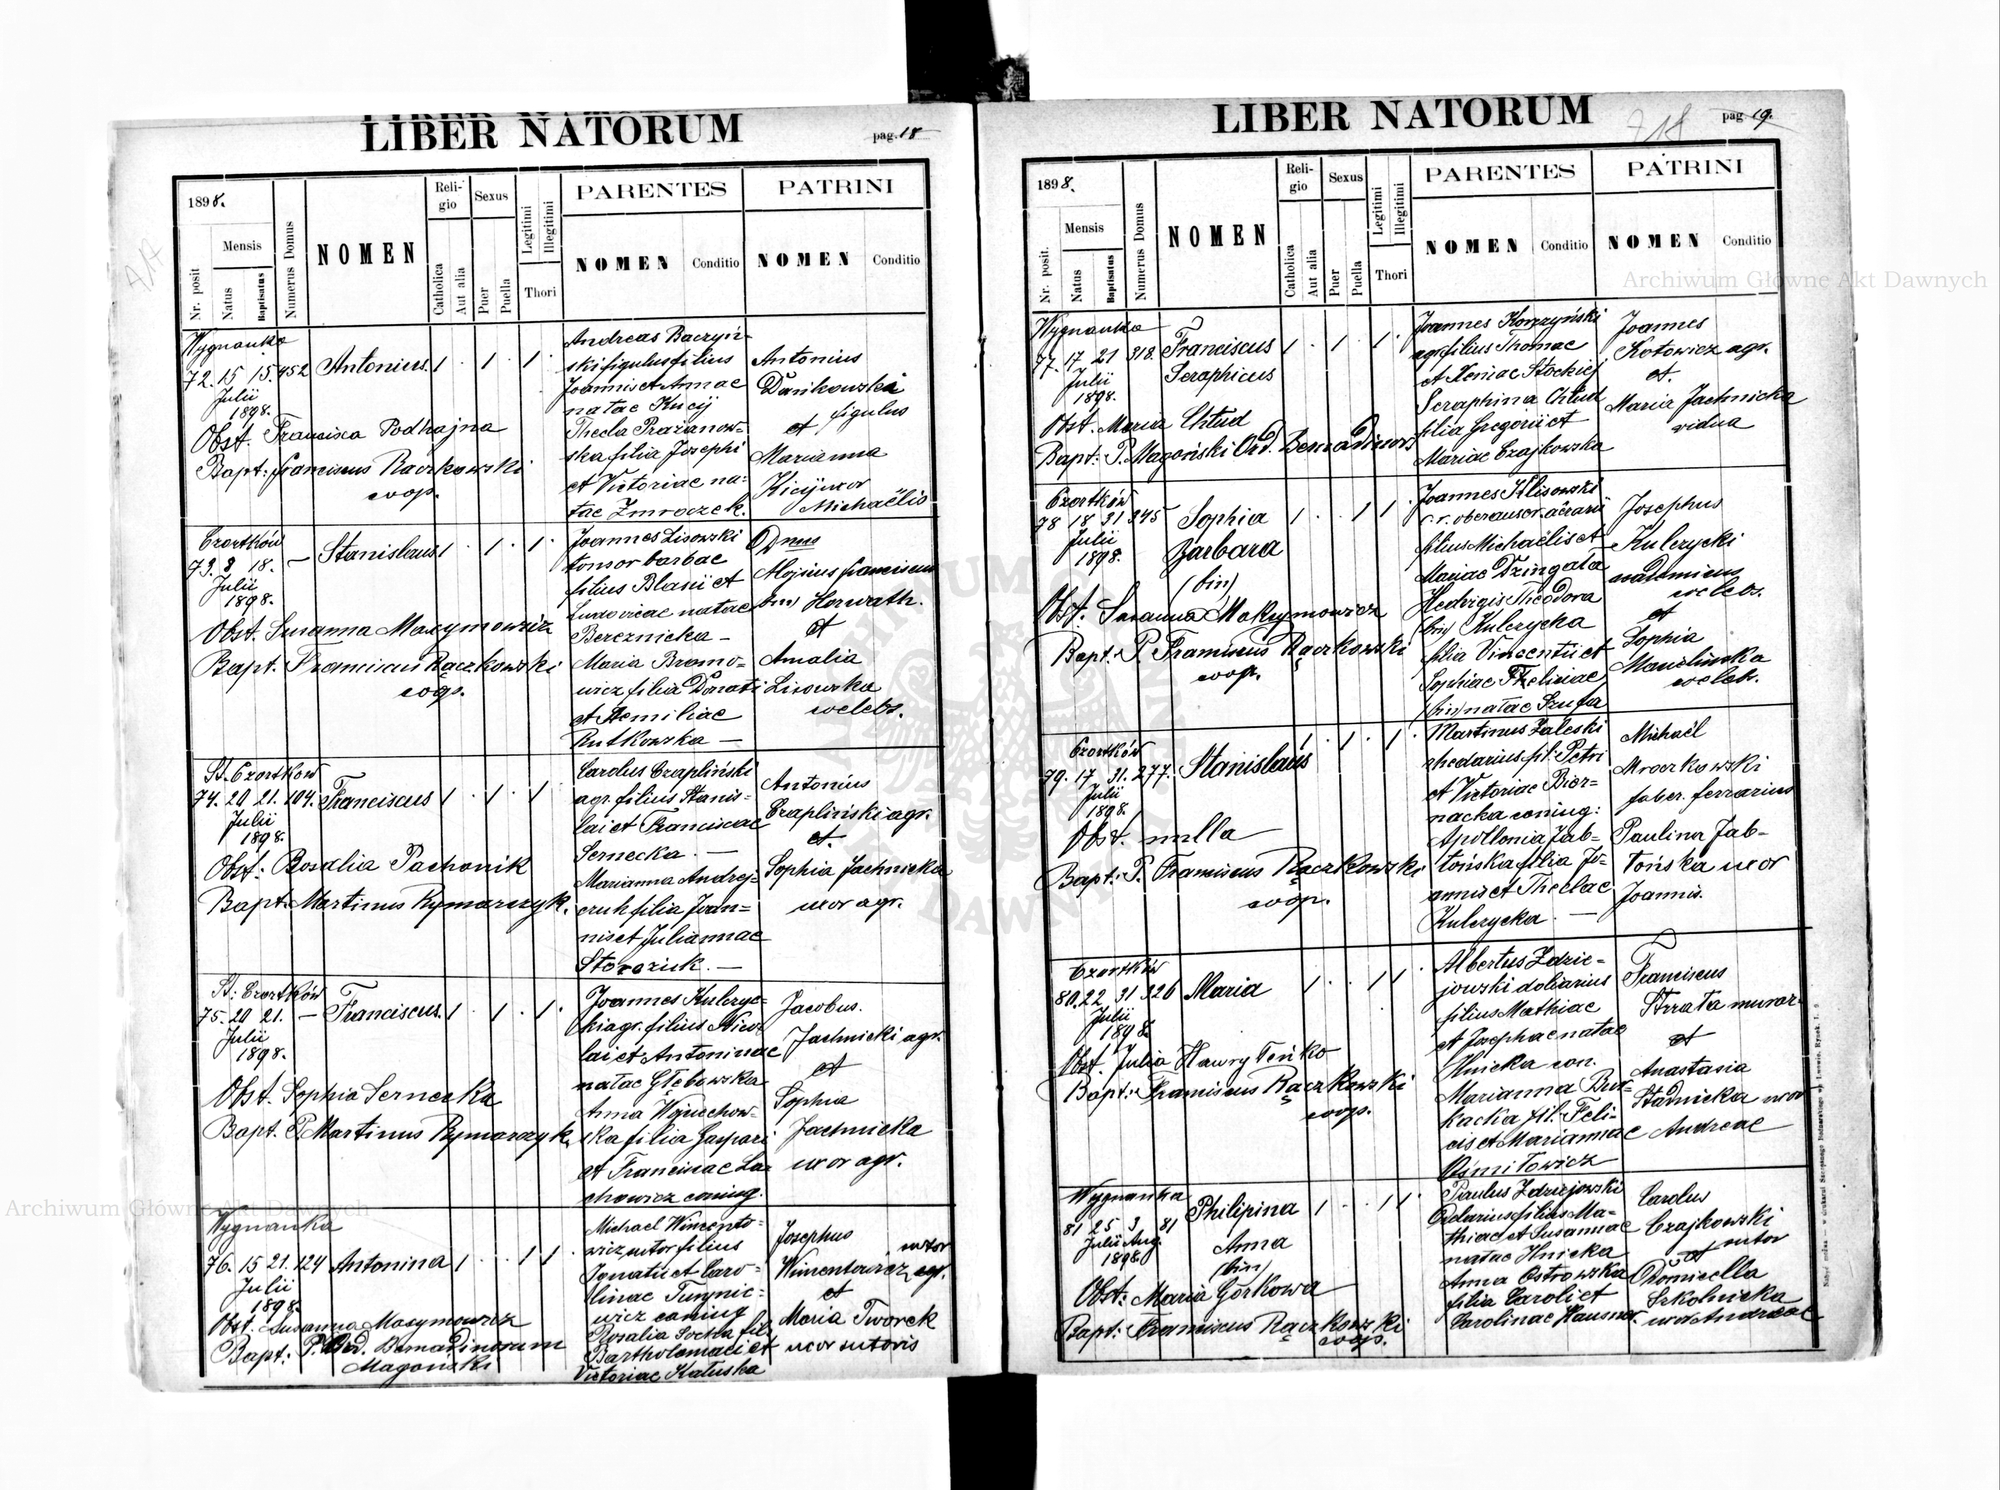 LIBER NATORUM
pag. 18
1898.
Nr. posit
Mensis
Natus
Baptisatus
Numerus Domus
NOMEN
Religio
Catholica
Aut alia
Sexus
Puer
Puella
Legitimi
Illegitimi
Thori
PARENTES
NOMEN
Conditio
PATRINI
NOMEN
Conditio
Wygnanka
72. 15 15. 452 Antonius. 1 . 1 . 1 .
Julii
1898.
Obst. Francisca Podhajna
Bapt: Franciscus Raczkowski
coop.
Andreas Baczyń-
ski figulus filius
Joannis et Annae
natae Kucij
Thecla Prażanow-
ska filia Josephi
et Victoriae na-
tae Zmroczek.
Antonius
Dańkowski
figulus
et
Marianna
Kicij uxor
Michaëlis
Czortków
73. 8 18. — Stanislaus 1 . 1 . 1 .
Julii
1898.
Obst. Susanna Maxymowicz
Bapt. Franciscus Rączkowski
coop.
Joannes Lisowski
tonsor barbae
filius Blasii et
Ludovicae natae
Bereznicka —
Maria Bromo-
wicz filia Donati
et Aemiliae
Rutkowska —
Dnus
Aloysius Franciscus
bin) Horwath.
et
Amalia
Lisowska
coelebs.
St. Czortków
74. 20 21. 104. Franciscus 1 . 1 . 1 .
Julii
1898.
Obst: Rosalia Pachonik
Bapt: Martinus Rymarczyk.
Carolus Czapliński
agr. filius Stanis-
lai et Franciscae
Sernecka. —
Marianna Andrej-
czuk filia Joan-
nis et Juliannae
Storoziuk. —
Antonius
Czapliński agr.
et.
Sophia Jachnicka
uxor agr.
St: Czortków
75. 20 21. — Franciscus. 1 . 1 . 1 .
Julii
1898.
Obst. Sophia Sernecka
Bapt. P. Martinus Rymarczyk
Joannes Kulczyc-
ki agr. filius Nico-
lai et Antoninae
natae Głębowska
Anna Wojciechow-
ska filia Gaspari
et Franciscae La-
chowicz coniug.
Jacobus.
Jachnicki agr.
et
Sophia
Jachnicka
uxor agr.
Wygnanka
76. 15 21. 124 Antonina 1 . . 1 1 .
Julii
1898.
Obst. Susanna Maxymowicz
Bapt: P. Ord. Bernadinorum
Magoński
Michael Wincento-
wicz sutor filius
Ignatii et Caro-
linae Turynie-
wicz coniug
Rosalia Socha fil.
Bartholomaei et
Victoriae Kaluska
Josephus
sutor
Wincentowicz agr.
et
Maria Tworek
uxor sutoris
LIBER NATORUM
718
pag 19.
1898.
Nr. posit.
Mensis
Natus
Baptisatus
Numerus Domus
NOMEN
Religio
Catholica
Aut alia
Sexus
Puer
Puella
Legitimi
Illegitimi
Thori
PARENTES
NOMEN
Conditio
PATRINI
NOMEN
Conditio
Wygnanka
77. 17 21 318. Franciscus 1 . 1 . 1 .
Julii Seraphicus
1898.
Obst. Maria Chłud
Bapt: P. Magoński Ord. Bernadinor.
Joannes Korzzyński
agr. filius Thomae
et Xeniae Stockiej
Seraphina Chłud
filia Gregorii et
Mariae Czajkowska
Joannes
Kotowicz agr.
et.
Maria Jachnicka
vidua
Czortków
78 18 31 345 Sophia 1 . . 1 1 .
Julii Barbara
1898. (bin)
Obst. Susanna Maksymowicz
Bapt: P. Franciscus Rączkowski
coop.
Joannes Klisowski
filius Michaelis et
Mariae Dzingała
Hedvigis Theodora
(bin) Kulczycka
filia Vincentii et
Sophiae Feliciae
(bin) natae Szufa
Josephus
Kulczycki
academicus
coelebs.
et
Sophia
coleb.
Czortków
79. 17. 31. 277. Stanislaus 1 . 1 . 1 .
Julii
1898.
Obst. nulla —
Bapt: P. Franciscus Rączkowski
coop.
Martinus Zaleski
rhedarius fil: Petri
et Victoriae Bier-
nacka coniug:
Apollonia Jab-
łońska filia Jo-
annis et Theclae
Kulczycka. —
Michaël
Mroczkowski
faber. ferrarius
Paulina Jab-
łońska uxor
Joannis.
Czortków
80. 22 31 326 Maria 1 . . 1 1 .
Julii
1898.
Obst. Julia Hawryleńko
Bapt: Franciscus Rączkowski
coop.
Albertus Zdzie-
jowski doliarius
filius Mathiae
et Josephae natae
Hnicka con.
Marianna Bur-
kacka fil. Feli-
cis et Mariannae
Ośmiłowicz
Franciscus
Strzata murar.
et
Anastasia
Stadnicka uxor
Andreae
Wygnanka
81 25 3 81 Philipina 1 . . 1 1 .
Julii Aug. Anna
1898. (bin)
Obst: Maria Górkowa —
Bapt: Franciscus Rączkowski
coop.
Paulus Zdziejowski
filius Ma-
thiae et Susannae
natae Hnicka
Anna Ostrowska
filia Caroli et
Carolinae Hausner.
Carolus
Czajkowski
sutor
et
Domicella
Szkolnicka
uxor Andreae
Archiwum Główne Akt Dawnych
Archiwum Główne Akt Dawnych